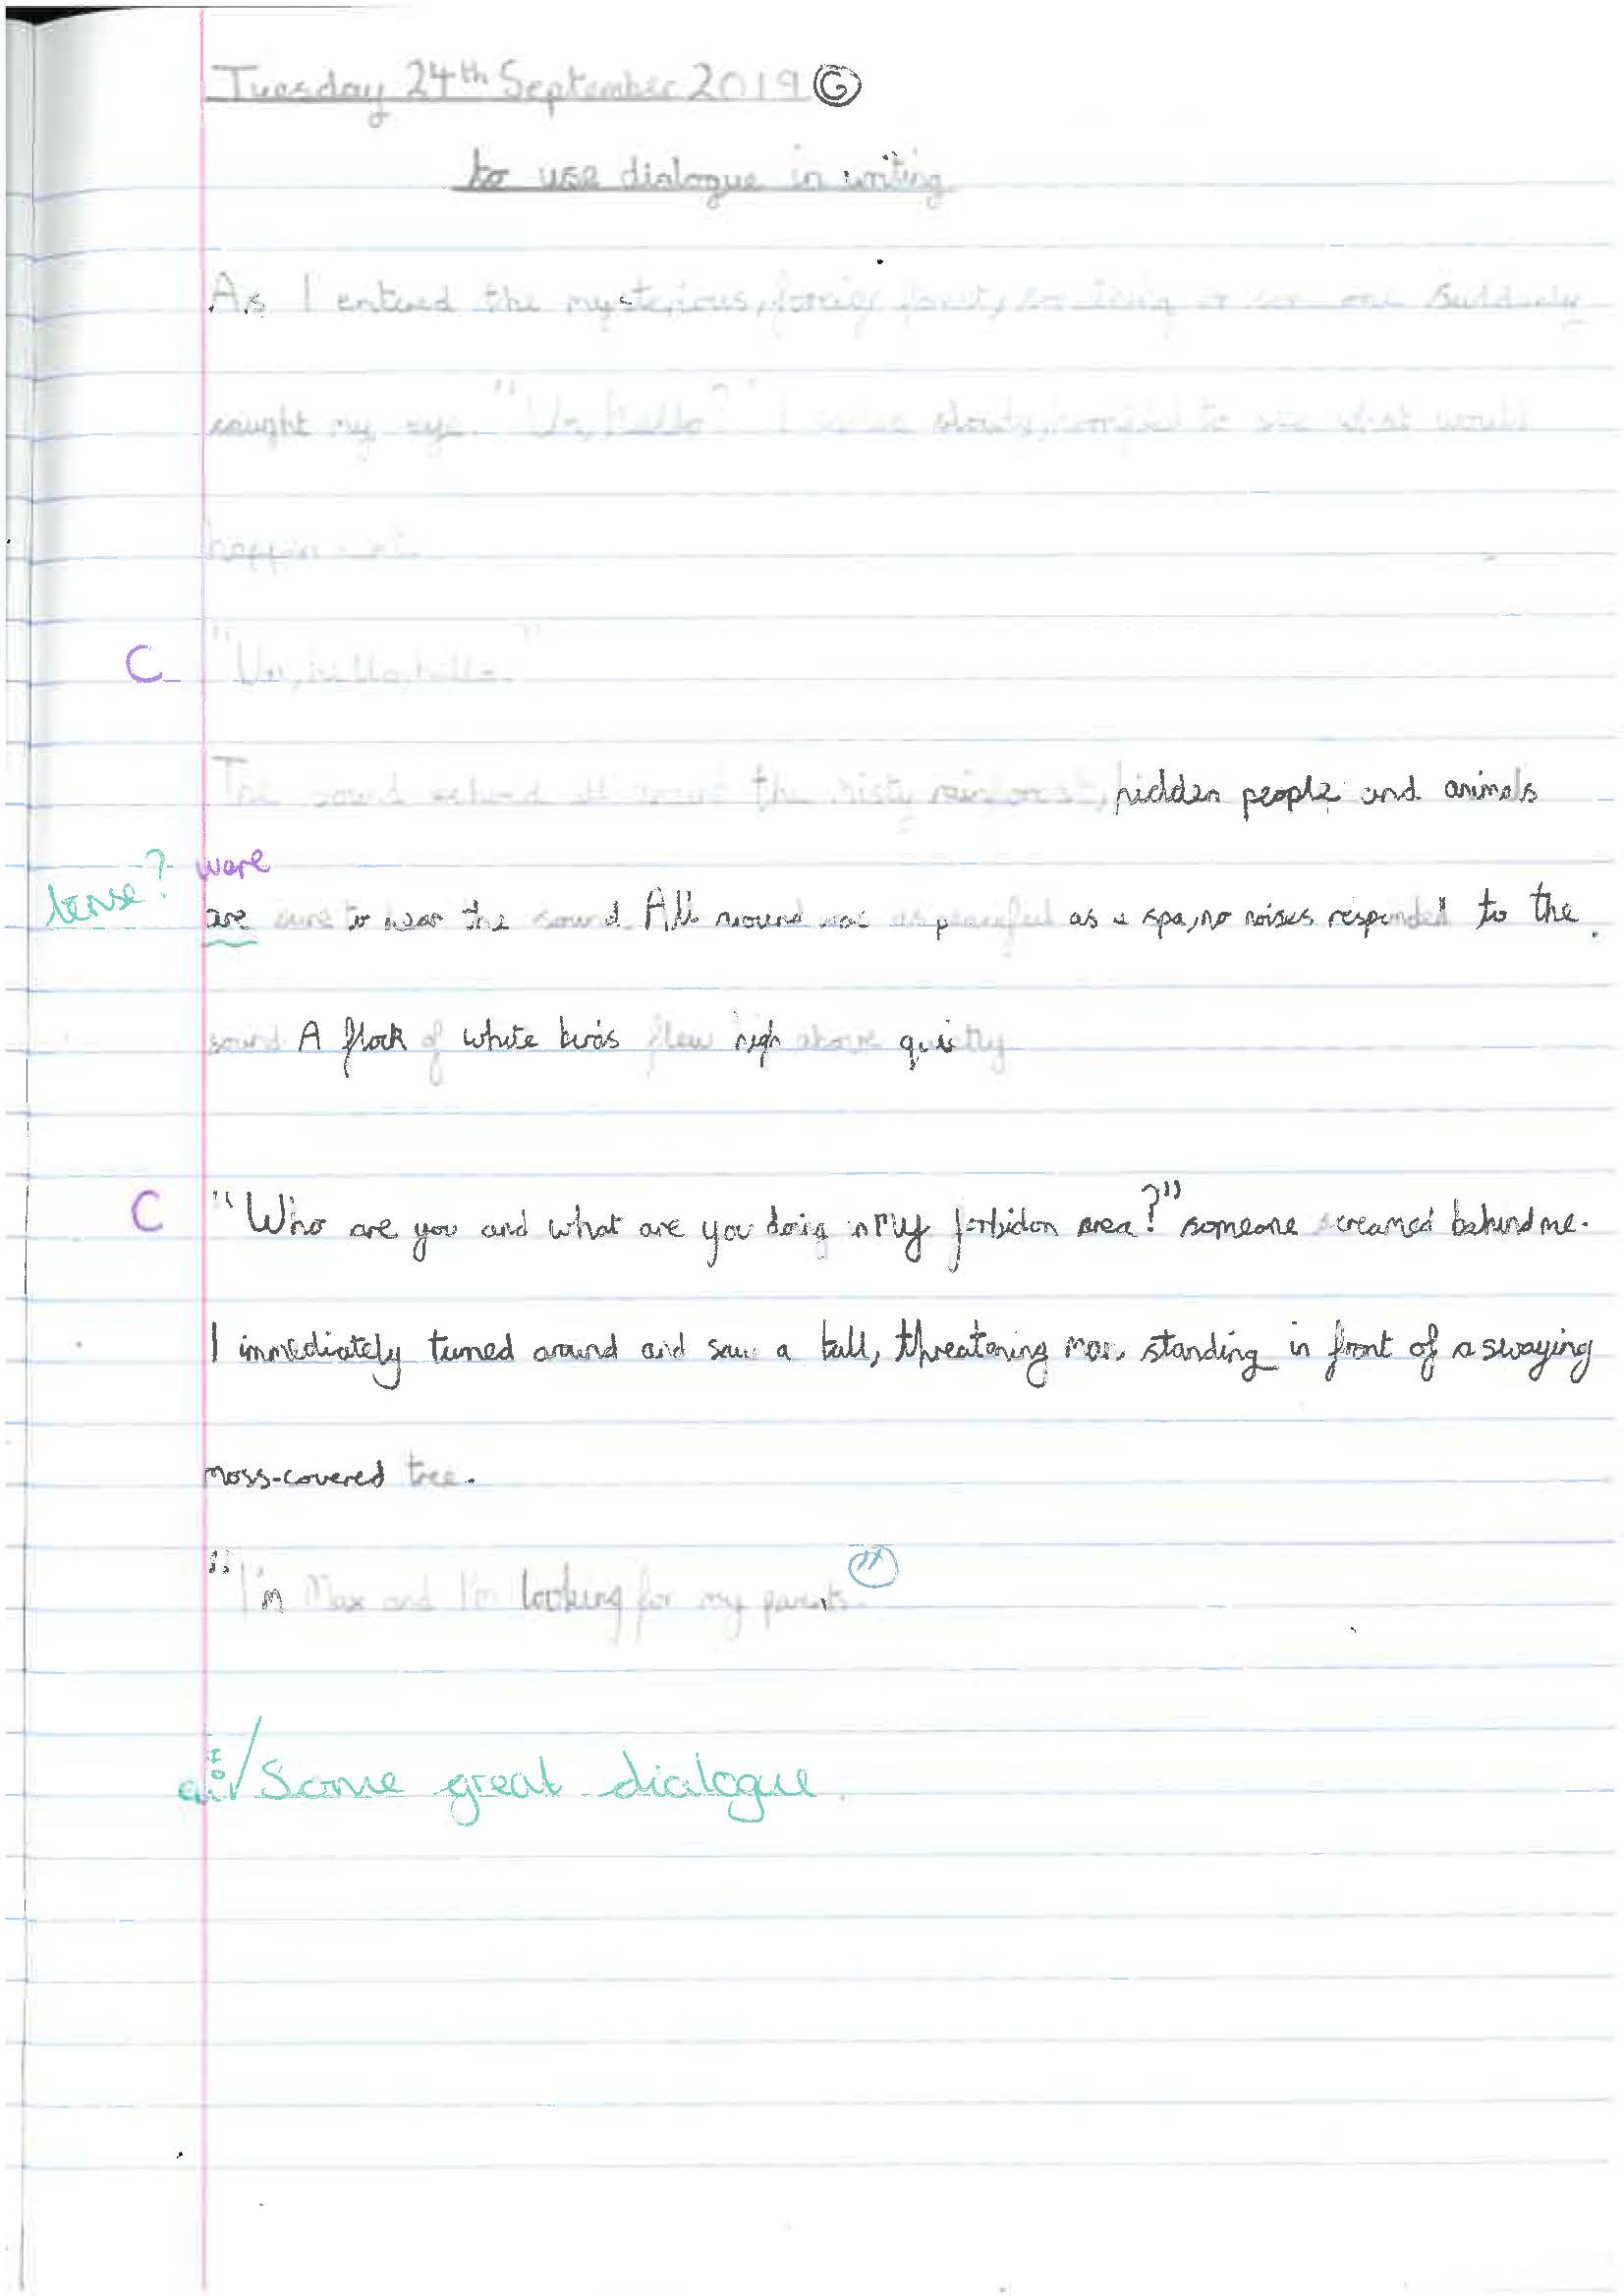 Tuesday 24th September 2019 G
to use dialogue in writing
As I entered the mysterious, suddenly
caught my eye. "Um, Hello?" I slowly, to see what would
happen
C "Um, hello, hello."
The sound echoed the misty rainforest, hidden people and animals
tense? were
are sure to hear the sound All around was as peaceful as a spa, no noises responded to the
sound A flock of white birds flew high above quietly
C "Who are you and what are you doing in My forbidon area?" someone screamed behind me.
I immediately turned around and saw a tall, threatening man standing in front of a swaying
moss-covered tree.
"I'm Max and I'm looking for my parents."
Some great dialogue.